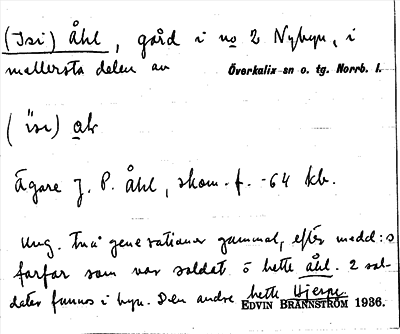 (Isi) Åhl, gård i no 2 Nybyn, i
mellersta delen av Överkalix sn o. tg. Norrb. l.
(isi) ak
Ägare J. P. Åhl, skom. f. -64 kb.
Ung. två generationer gammal, efter medd:s
farfar som var soldat o hette åhl. 2 sol-
dater funns i byn. Den andre hette Hierpe.
EDVIN BRÄNNSTRÖM 1936.